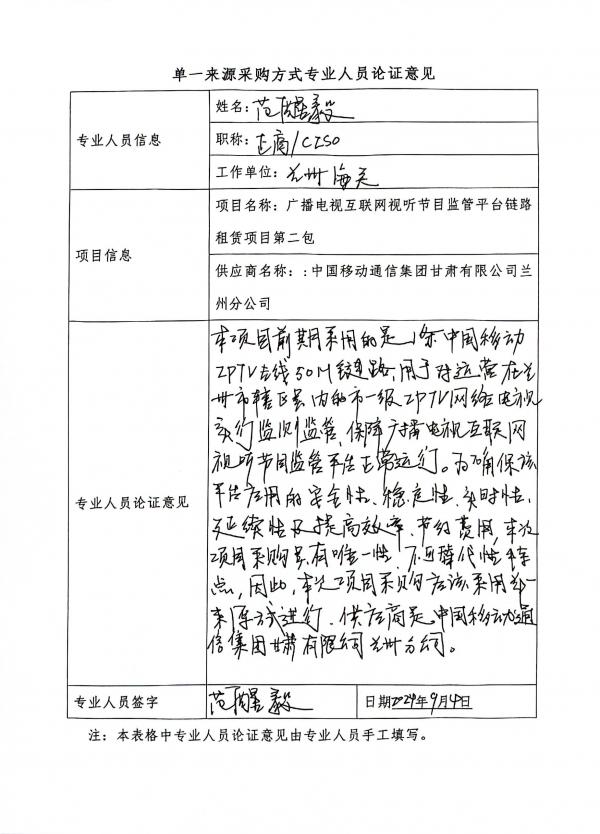 单一来源采购方式专业人员论证意见
专业人员信息
姓名:范 毅
职称:正高/CISO
工作单位:兰州海关
项目信息
项目名称:广播电视互联网视听节目监管平台链路
租赁项目第二包
供应商名称::中国移动通信集团甘肃有限公司兰
州分公司
专业人员论证意见
本项目前期采用的是1条中国移动
IPTV专线50M链路,用于对运营在兰
州市辖区县内的市一级IPTV网络电视
实行监测监管,保障广播电视互联网
视听节目监管平台正常运行。为确保该
平台应用的安全性、稳定性、实时性、
延续性及提高效率、节约费用,本次
项目采购具有唯一性、不可替代性特
点,因此,本次项目采购应该采用单一
来源方式进行,供应商是中国移动通
信集团甘肃有限公司兰州分公司。
专业人员签字
范 毅
日期2024年9月4日
注:本表格中专业人员论证意见由专业人员手工填写。